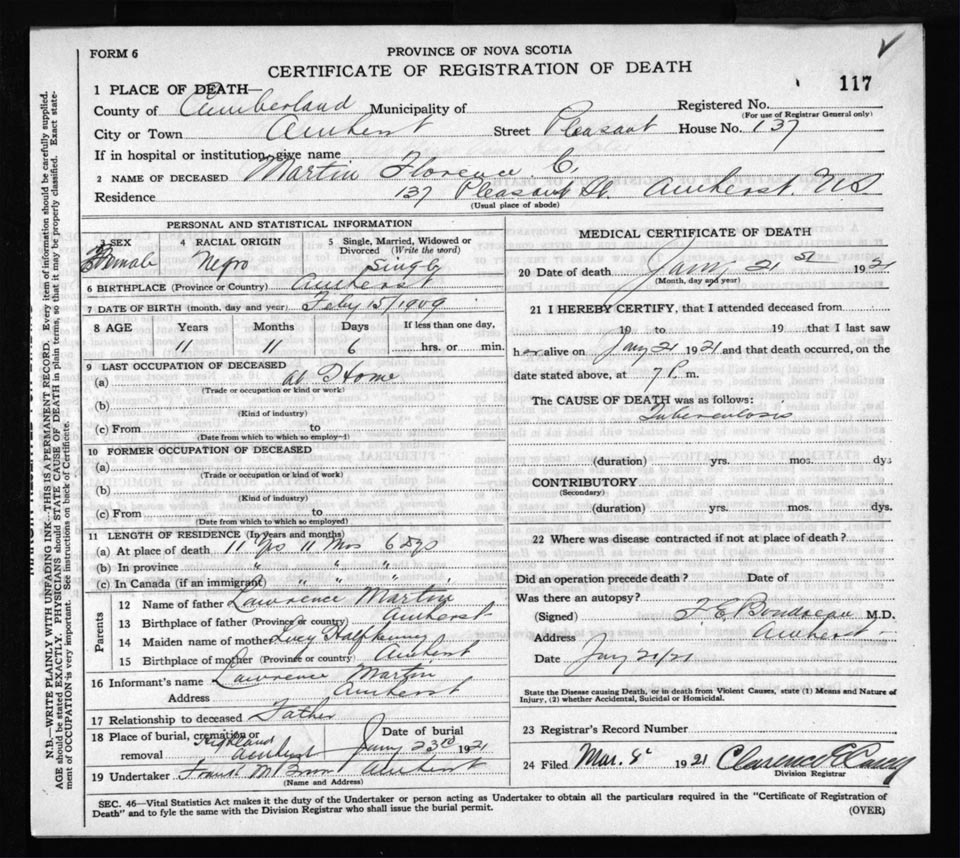 FORM 6
PROVINCE OF NOVA SCOTIA
CERTIFICATE OF REGISTRATION OF DEATH
117
1 PLACE OF DEATH—
County of Cumberland Municipality of Registered No.
(For use of Registrar General only)
City or Town Amherst Street Pleasant House No. 137
If in hospital or institution, give name
2 NAME OF DECEASED Martin Florence C.
Residence 137 Pleasant St. Amherst. NS
(Usual place of abode)
PERSONAL AND STATISTICAL INFORMATION
3 SEX 4 RACIAL ORIGIN 5 Single, Married, Widowed or Divorced (Write the word)
Female Negro Single
6 BIRTHPLACE (Province or Country) Amherst
7 DATE OF BIRTH (month, day and year) Feby 15/1909
8 AGE Years Months Days If less than one day,
11 11 6 hrs. or min.
9 LAST OCCUPATION OF DECEASED
(a) at Home
(Trade or occupation or kind or work)
(b)
(Kind of industry)
(c) From to
(Date from which to which so employ-1)
10 FORMER OCCUPATION OF DECEASED
(a)
(Trade or occupation or kind of work)
(b)
(Kind of industry)
(c) From to
(Date from which to which so employed)
11 LENGTH OF RESIDENCE (In years and months)
(a) At place of death 11 Yrs 11 Mos 6 Dys
(b) In province " " "
(c) In Canada (if an immigrant) " " "
Parents
12 Name of father Lawrence Martin
13 Birthplace of father (Province or country) Amherst
14 Maiden name of mother Lucy Halfkenny
15 Birthplace of mother (Province or country) Amherst
16 Informant's name Lawrence Martin
Address Amherst
17 Relationship to deceased Father
18 Place of burial, cremation or removal Highland Amherst Date of burial Jany 23rd 1921
19 Undertaker Amherst
(Name and Address)
MEDICAL CERTIFICATE OF DEATH
20 Date of death Jany 21st 1921
(Month, day and year)
21 I HEREBY CERTIFY, that I attended deceased from
19 to 19 that I last saw
her alive on Jany 21 1921 and that death occurred, on the
date stated above, at 7 P. m.
The CAUSE OF DEATH was as follows:
Tuberculosis
(duration) yrs. mos. dys
CONTRIBUTORY
(Secondary)
(duration) yrs. mos. dys.
22 Where was disease contracted if not at place of death?
Did an operation precede death? Date of
Was there an autopsy?
(Signed) F. E. Boudreau M.D.
Address Amherst
Date Jany 21/21
State the Disease causing Death, or in death from Violent Causes, state (1) Means and Nature of
Injury, (2) whether Accidental, Suicidal or Homicidal.
23 Registrar's Record Number
24 Filed Mar. 8 1921 Clarence E Casey
Division Registrar
SEC. 46—Vital Statistics Act makes it the duty of the Undertaker or person acting as Undertaker to obtain all the particulars required in the "Certificate of Registration of
Death" and to fyle the same with the Division Registrar who shall issue the burial permit.
(OVER)
N.B.—WRITE PLAINLY WITH UNFADING INK—THIS IS A PERMANENT RECORD. Every item of information should be carefully supplied.
AGE should be stated EXACTLY. PHYSICIANS should STATE CAUSE OF DEATH in plain terms, so that it may be properly classified. Exact state-
ment of OCCUPATION is very important. See instructions on back of Certificate.